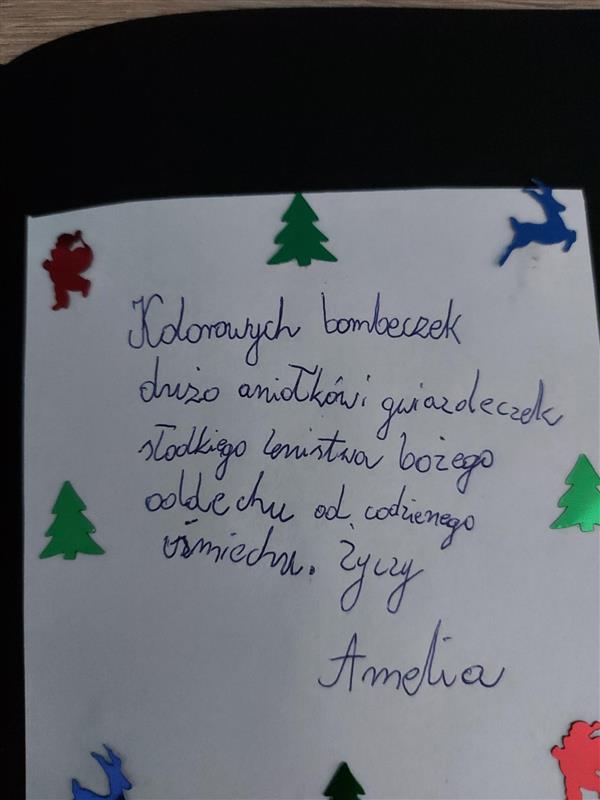 Kolorowych bombeczek
dużo aniołków i gwiazdeczek
słodkiego lenistwa bożego
oddechu od codzienego
uśmiechu. Życzy
Amelia